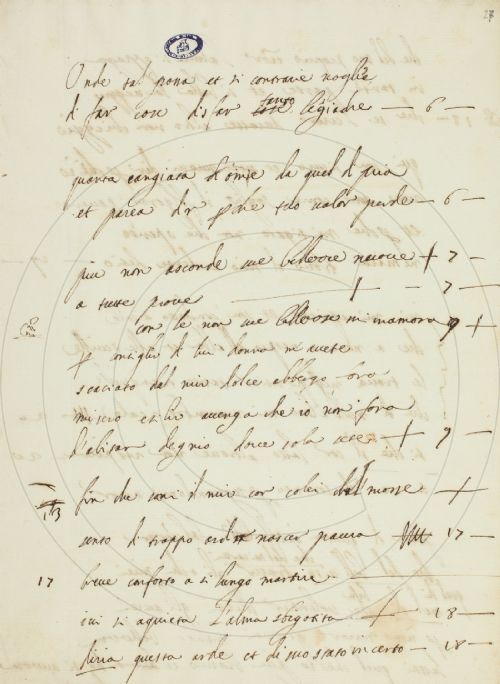 27
Onde tal prova et si contrarie voglie
di far cose disfar tanto legiadre — 6 —
quanto cangiata da quel di pria
et parea dir perche tuo valor perde — 6 —
piu non asconde sue bellezze nuove + 7 —
a tutte prove — + — 7 —
con le non sue bellezze mi innamora 9 +
per consiglio di lui donna m'avete
scaciato dal mio dolce albergo fora
misero exilio avenga che io non fora
d'abitar degnio dove sola sete + 9 —
fin che sani il mio cor colei ch'l morse +
sento di troppo ardir nascer paura 17 —
17 breve conforto a si lungo martire
ivi si aqueta l'alma sbigotita + 18 —
diria questa arde et di suo stato incerto — 18 —